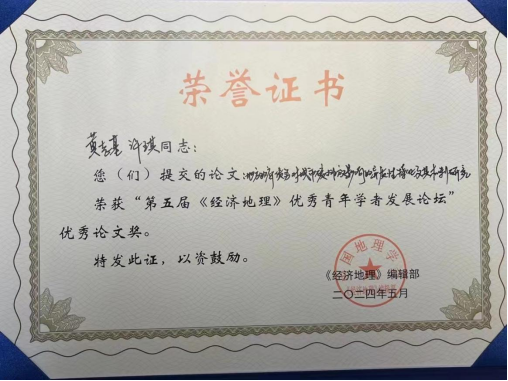 荣誉证书
许琪同志：
您（们）提交的论文：
荣获“第五届《经济地理》优秀青年学者发展论坛”
优秀论文奖。
特发此证，以资鼓励。
国地理学
《经济地理》编辑部
二〇二四年五月